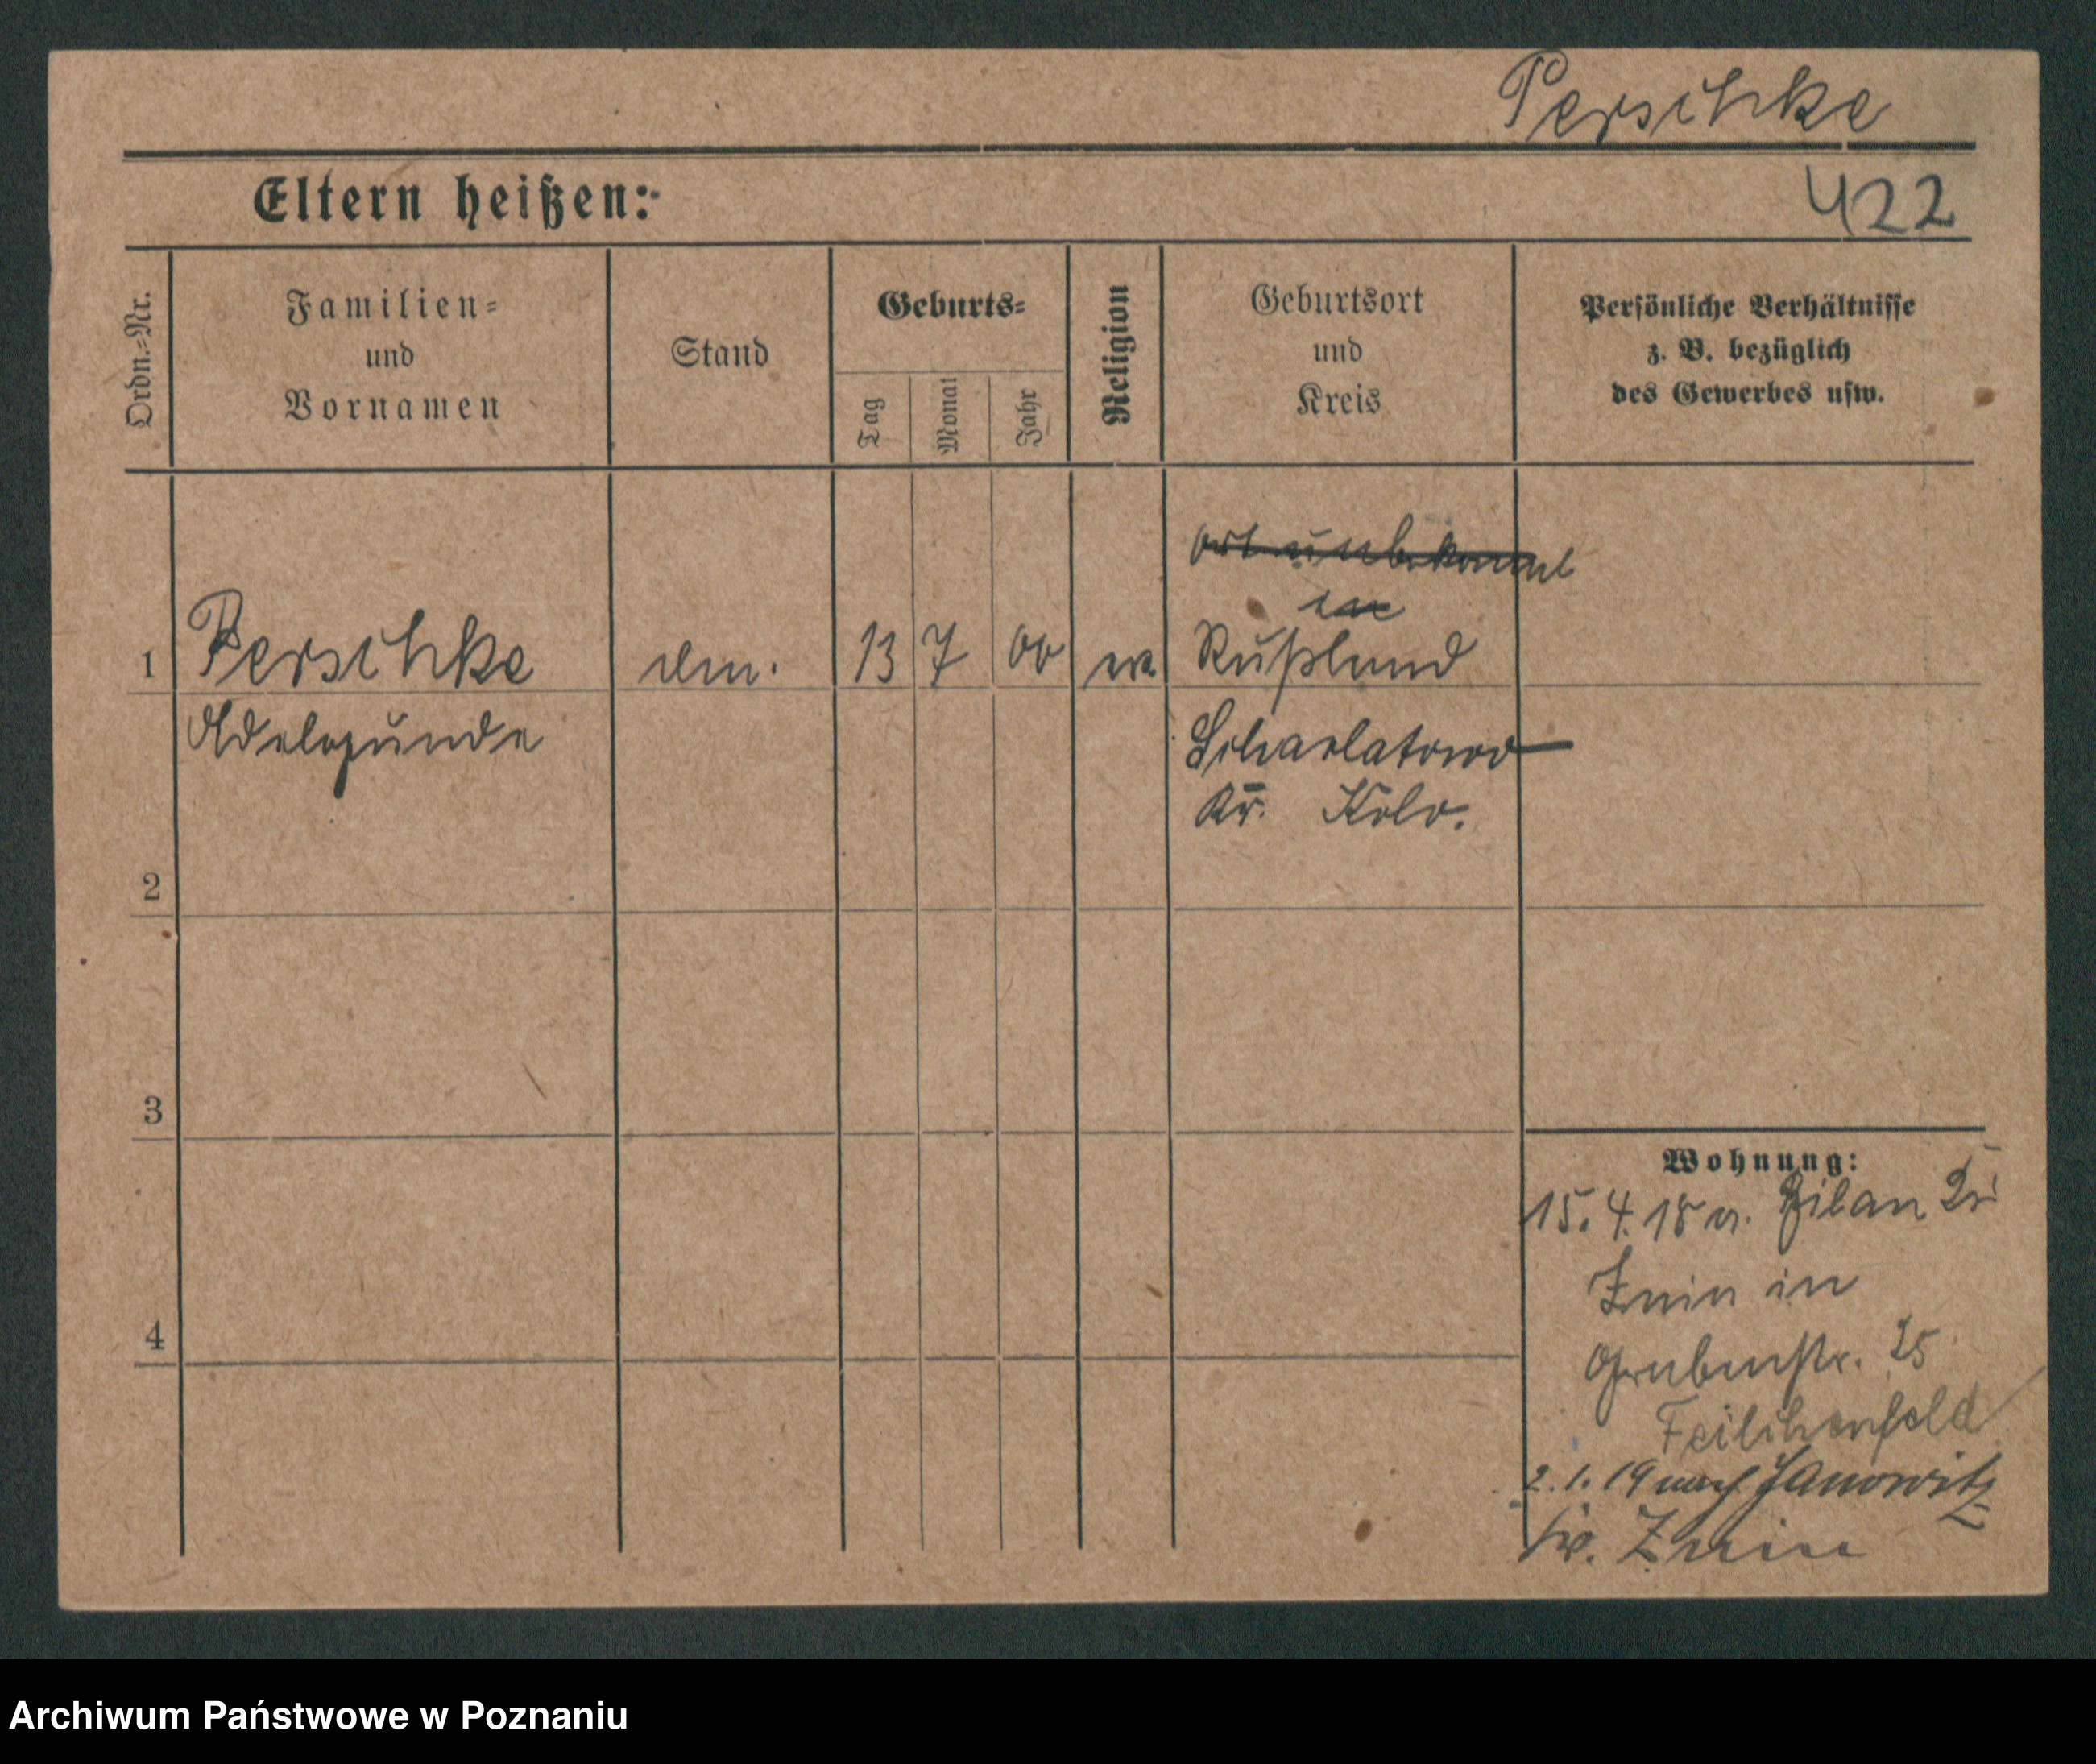 Perschke
Eltern heißen:
422
Ordn.-Nr.
Familien-
und
Vornamen
Stand
Geburts-
Tag
Monat
Jahr
Religion
Geburtsort
und
Kreis
Persönliche Verhältnisse
z. B. bezüglich
des Gewerbes usw.
Ort unbekannt
in
1 Perschke 13 7 00 ev. Rußland
Adelgunde
Scharlatowo
Kr. Kolo.
2
3
4
Wohnung:
15. 4. 18 v.
Znin in
Grabenstr. 25
Feilchenfeld
2. 1. 19 nach Janowitz
Kr. Znin
Archiwum Państwowe w Poznaniu